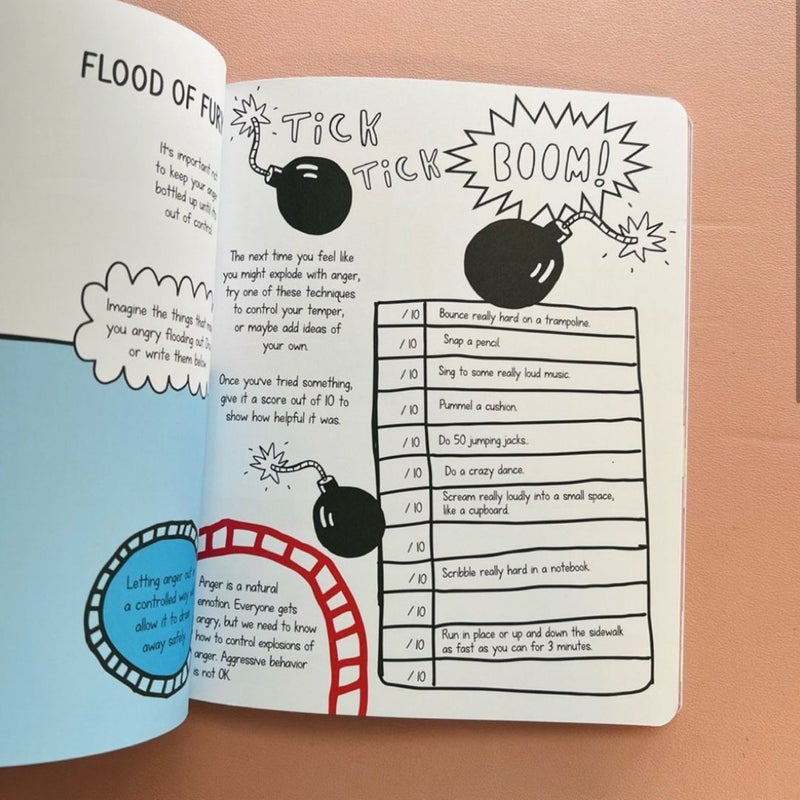 FLOOD OF FURY
It's important not
to keep your anger
bottled up until it's
out of control.
Imagine the things that
you angry flooding out.
or write them below
Letting anger out
a controlled way
allow it to drain
away safely.
TICK
TICK
BOOM!
The next time you feel like
you might explode with anger,
try one of these techniques
to control your temper,
or maybe add ideas of
your own.
Once you've tried something,
give it a score out of 10 to
show how helpful it was.
Anger is a natural
emotion. Everyone gets
angry, but we need to know
how to control explosions of
anger. Aggressive behavior
is not OK.
/ 10 Bounce really hard on a trampoline.
/ 10 Snap a pencil.
/ 10 Sing to some really loud music.
/ 10 Pummel a cushion.
/ 10 Do 50 jumping jacks.
/ 10 Do a crazy dance.
/ 10 Scream really loudly into a small space,
like a cupboard.
/ 10
/ 10 Scribble really hard in a notebook.
/ 10
/ 10 Run in place or up and down the sidewalk
as fast as you can for 3 minutes.
/ 10